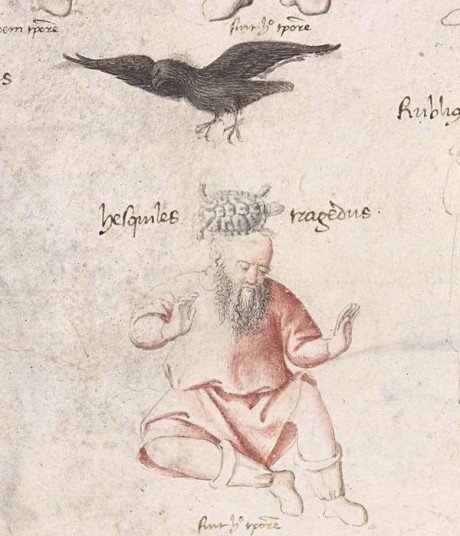 em tp̄ore fuit hͦ tp̄ore
s
hesquiles tragedus
fuit hͦ tp̄ore